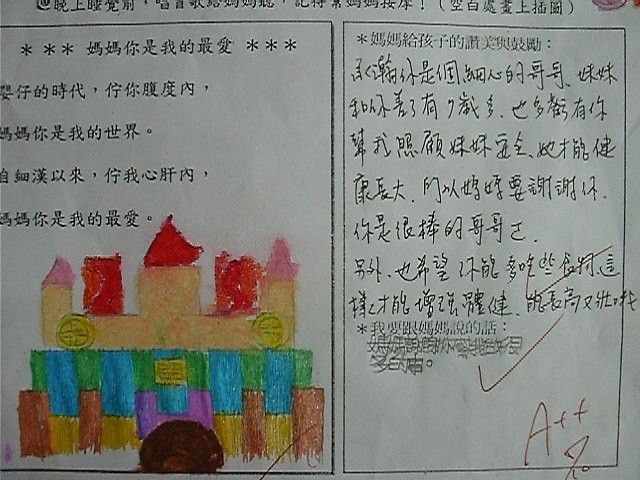 @晚上睡覺前，唱首歌給媽媽聽，記得幫媽媽按摩！（空白處畫上插圖）
＊＊＊ 媽媽你是我的最愛 ＊＊＊
嬰仔的時代，佇你腹度內，
媽媽你是我的世界。
自細漢以來，佇我心肝內，
媽媽你是我的最愛。
＊媽媽給孩子的讚美與鼓勵：
瀚你是個細心的哥哥、妹妹
和你差了有7歲多，也多虧有你
幫我照顧妹妹安全、她才能健
康長大，所以媽媽要謝謝你.
你是很棒的哥哥
另外、也希望你能多吃些食物,這
樣才能增強體健、能長高又壯哦
＊我要跟媽媽說的話：
A++